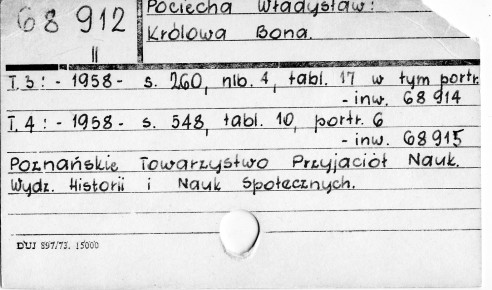 68 912
II
Pociecha Władysław:
Królowa Bona.
T. 3: - 1958 - s. 260, nlb. 4, tabl. 17 w tym portr.
- inw. 68 914
T. 4: - 1958 - s. 548, tabl. 10, portr. 6
- inw. 68915
Poznańskie Towarzystwo Przyjaciół Nauk.
Wydz. Historii i Nauk Społecznych.
DUJ 897/73. 15000